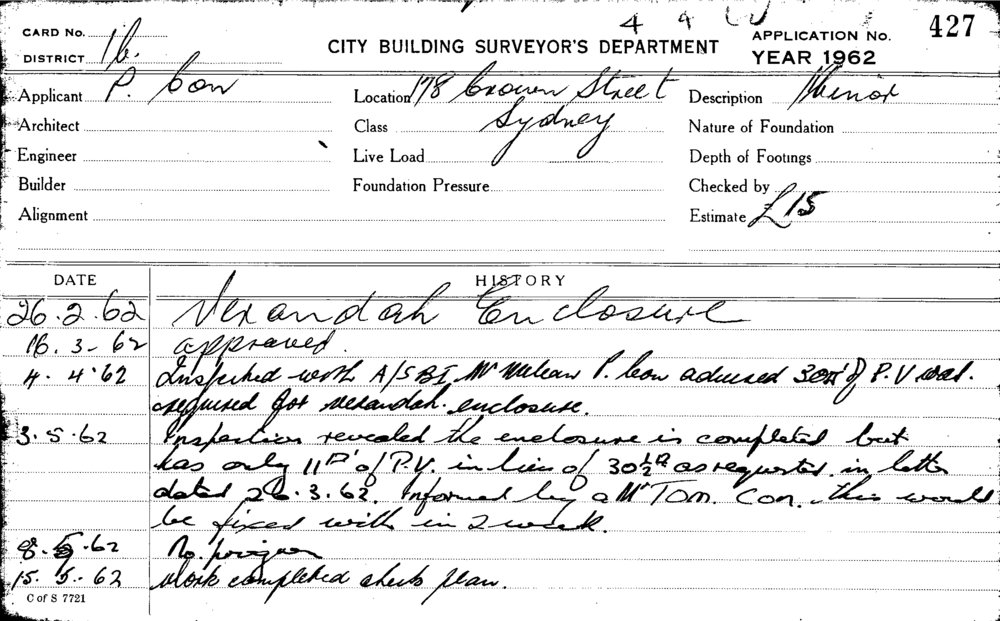 4 4
427
CARD No.
DISTRICT 16.
CITY BUILDING SURVEYOR'S DEPARTMENT
APPLICATION No.
YEAR 1962
Applicant P. Con
Location 178 Crown Street
Description Minor
Architect
Class Sydney
Nature of Foundation
Engineer
Live Load
Depth of Footings
Builder
Foundation Pressure
Checked by
Alignment
Estimate £15
DATE HISTORY
26.2.62 Verandah Enclosure
16.3-62 approved.
4.4.62 Inspected with A/SBI Mr P. Con advised of P.V was.
required for verandah enclosure.
3.5.62 Inspection revealed the enclosure is completed but
has only 11 of P.V. in lieu of 30½ as requested in letter
dated 26.3.62. Informed by a Mr Tom. Con. this would
be fixed with in 2 week.
8.5.62 No progress
15.5.62 Work completed plan.
C of S 7721